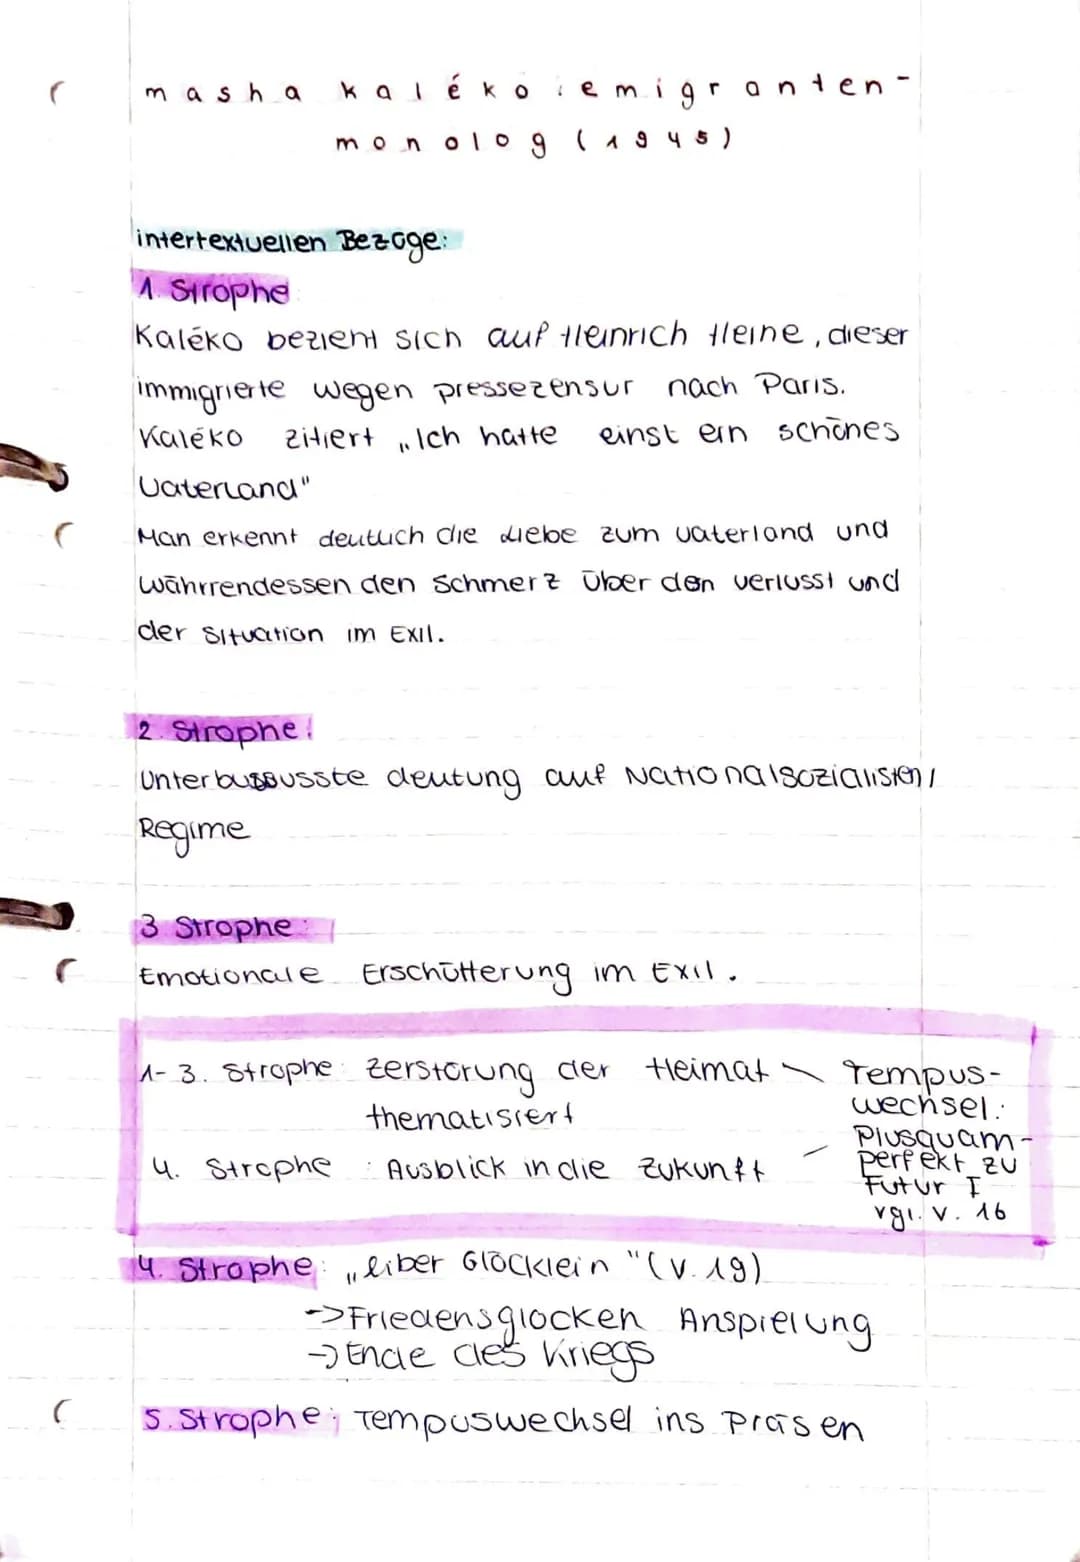 masha kaléko: emigranten-
monolog (1945)
intertextuellen Bezüge:
1. Strophe
Kaléko bezieht sich auf Heinrich Heine, dieser
immigrierte wegen pressezensur nach Paris.
Kaléko zitiert „Ich hatte einst ein schönes
Vaterland"
Man erkennt deutlich die Liebe zum vaterland und
währrendessen den Schmerz über den verlusst und
der Situation im Exil.
2. Strophe:
Unterbussusste deutung auf Nationalsozialisten/
Regime
3 Strophe:
Emotionale Erschütterung im Exil.
1-3. Strophe: Zerstörung der Heimat
thematisiert
4. Strophe: Ausblick in die Zukunft
Tempus-
wechsel:
Plusquam-
perfekt zu
Futur I
vgl. v. 16
4. Strophe: „liber Glöcklein" (v. 19)
->Friedensglocken Anspielung
-> Ende des Kriegs
5. Strophe: Tempuswechsel ins Präsen